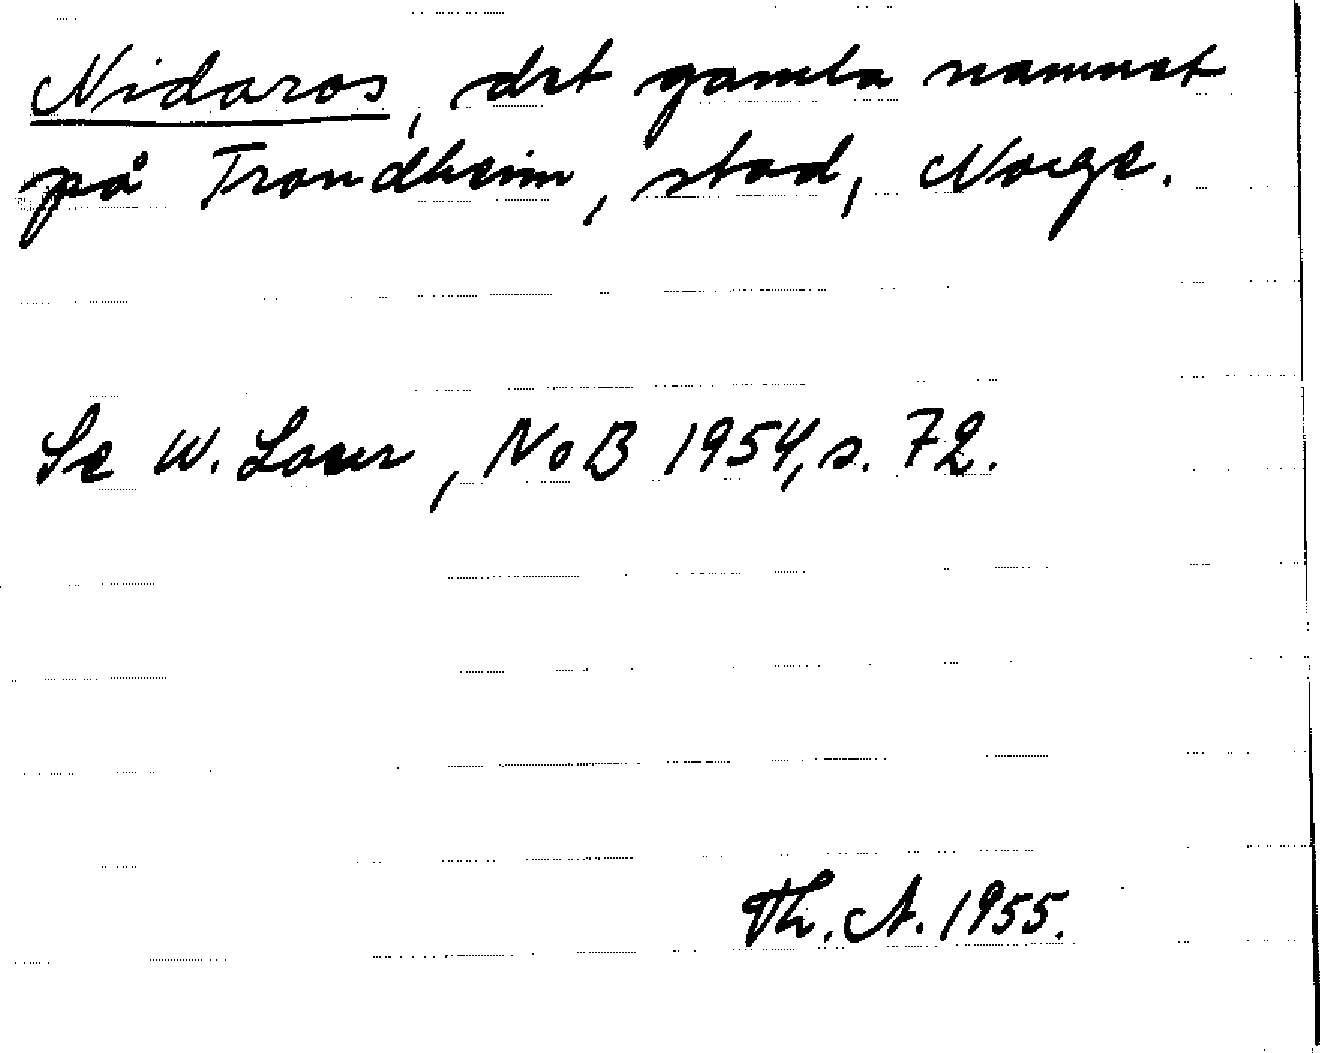 Nidaros, det gamla namnet
på Trondheim, stad, Norge.
Se W. Laur, NoB 1954, s. 72.
Th. A. 1955.